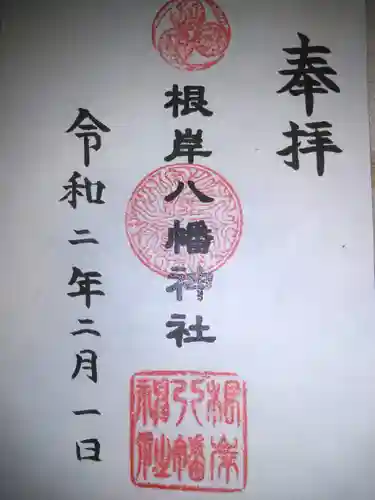 奉拝
根岸八幡神社
令和二年二月一日
根岸八幡神社